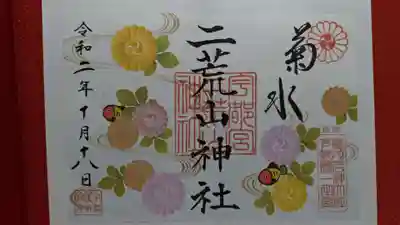 菊水
二荒山神社
宇都宮
令和二年十月十八日